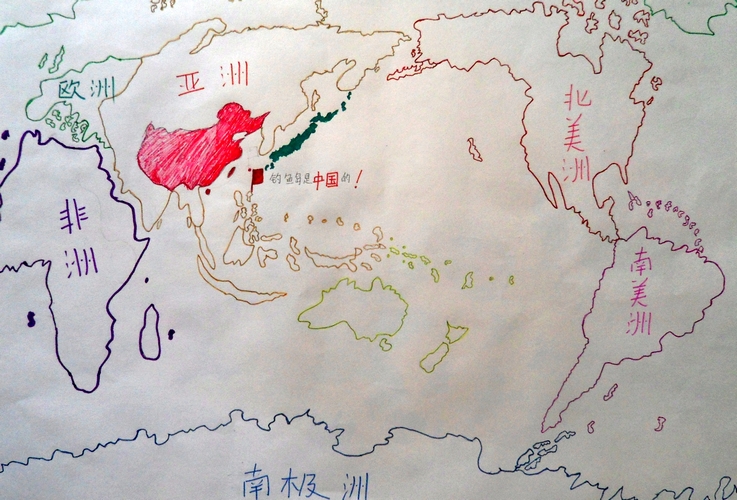 欧洲
亚洲
北美洲
钓鱼岛是中国的！
非洲
南美洲
南极洲